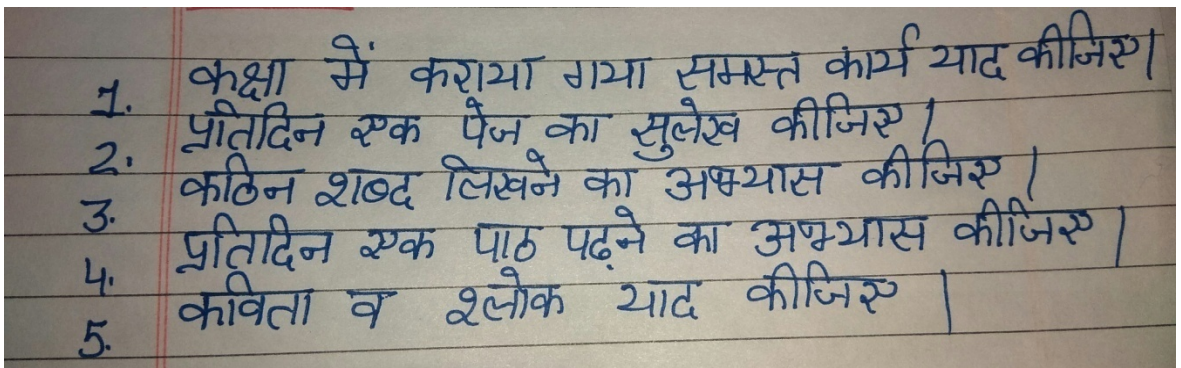 1. कक्षा में कराया गया समस्त कार्य याद कीजिए।
2. प्रतिदिन एक पेज का सुलेख कीजिए।
3. कठिन शब्द लिखने का अभ्यास कीजिए।
4. प्रतिदिन एक पाठ पढ़ने का अभ्यास कीजिए।
5. कविता व श्लोक याद कीजिए।